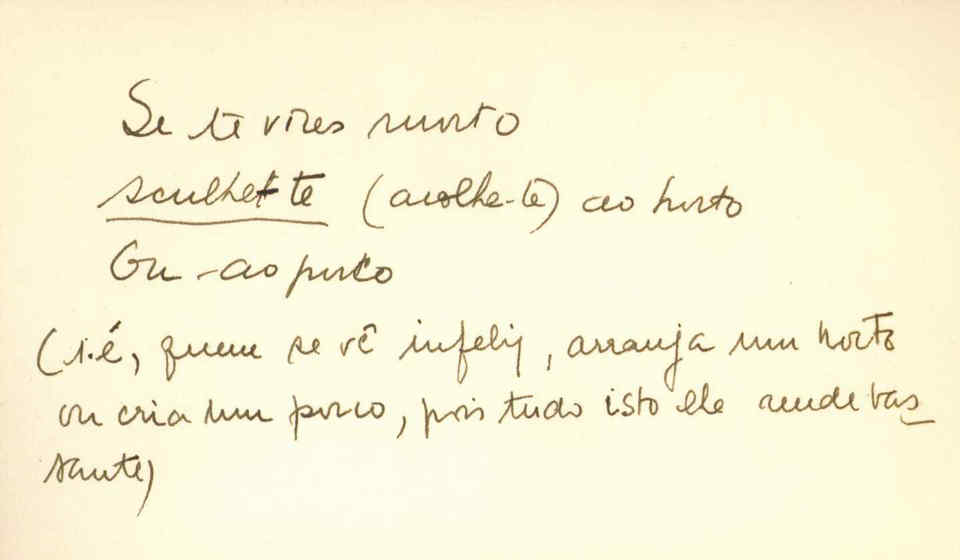 Se te vires morto
sculhet-te (acolhe-te) ao horto
Ou - ao porco
(i.é, quem se vê infeliz, arranja um horto
ou cria um porco, pois tudo isto lhe rende bas_
tante)